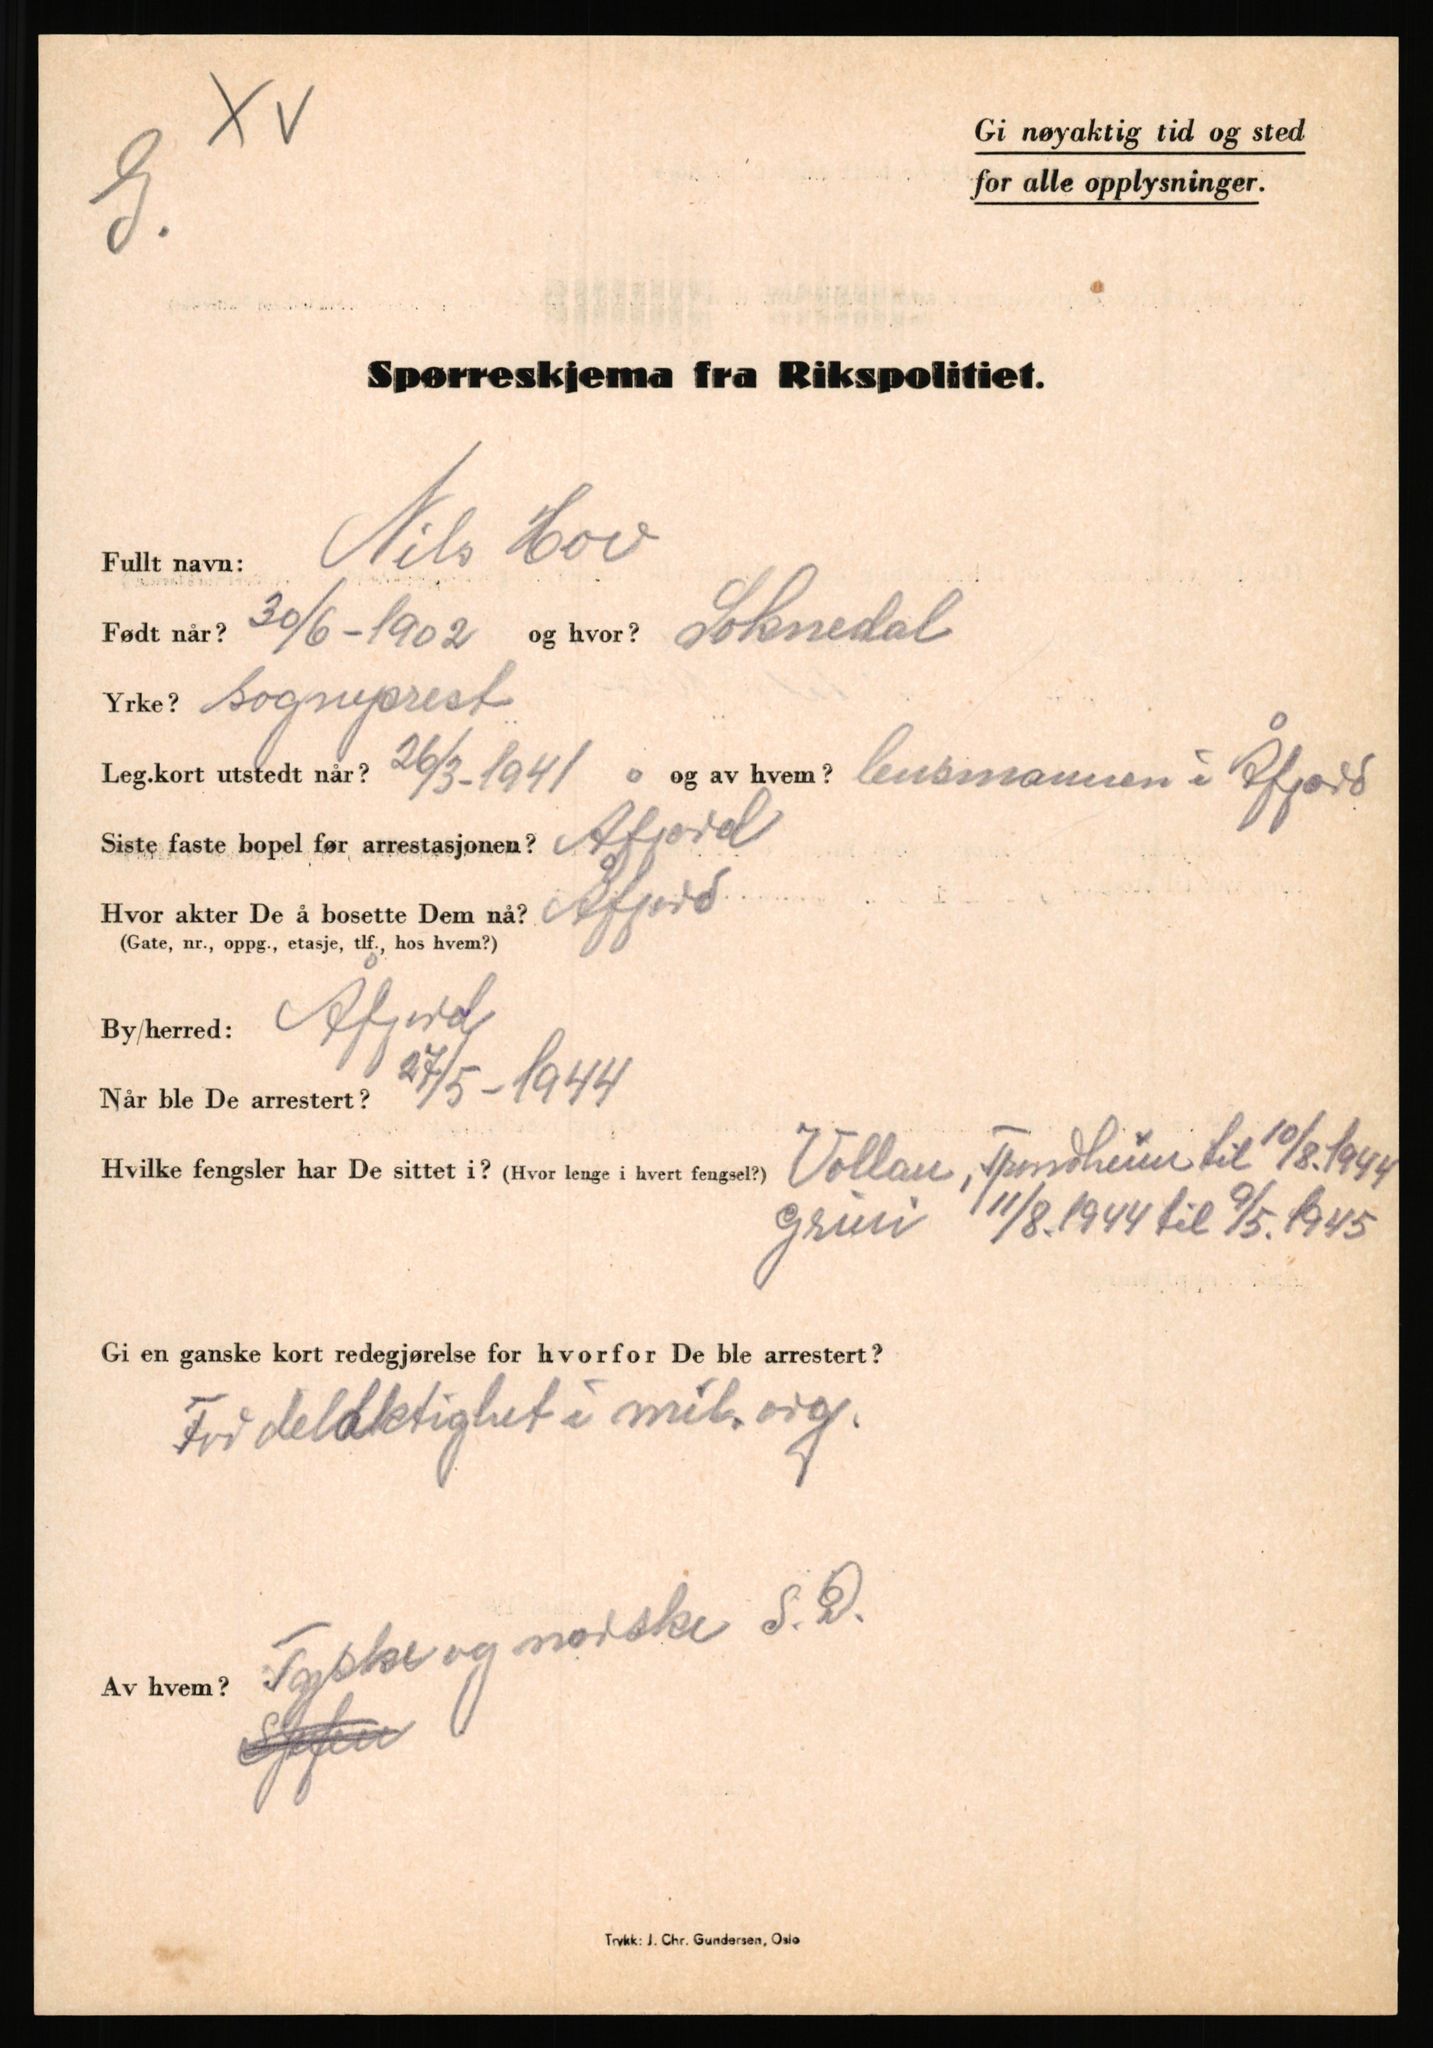 X V
G.
Gi nøyaktig tid og sted
for alle opplysninger.
Spørreskjema fra Rikspolitiet.
Fullt navn: Nils Hov
Født når? 30/6-1902 og hvor? Soknedal
Yrke? sogneprest
Leg.kort utstedt når? 26/3-1941 og av hvem? lensmannen i Åfjord
Siste faste bopel før arrestasjonen? Åfjord
Hvor akter De å bosette Dem nå? Åfjord
(Gate, nr., oppg., etasje, tlf., hos hvem?)
By/herred: Åfjord
Når ble De arrestert? 27/5-1944
Hvilke fengsler har De sittet i? (Hvor lenge i hvert fengsel?) Vollan, Trondheim til 10/8.1944
Grini 11/8.1944 til 9/5.1945
Gi en ganske kort redegjørelse for hvorfor De ble arrestert?
For delaktighet i mil. org.
Av hvem? Tyske og norske S.D.
Trykk: J. Chr. Gundersen, Oslo